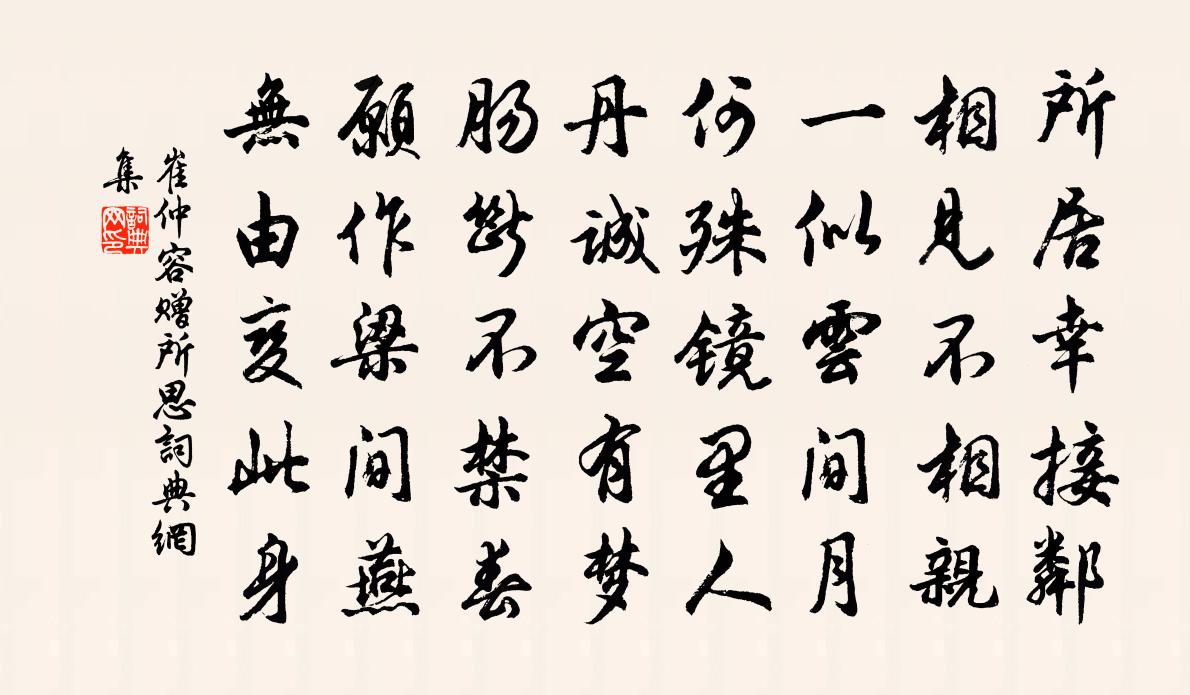 所居幸接鄰
相見不相親
一似雲間月
何殊鏡里人
丹誠空有梦
肠斷不禁春
願作梁间燕
無由变此身
崔仲容赠所思詞典網
集
詞典
网印